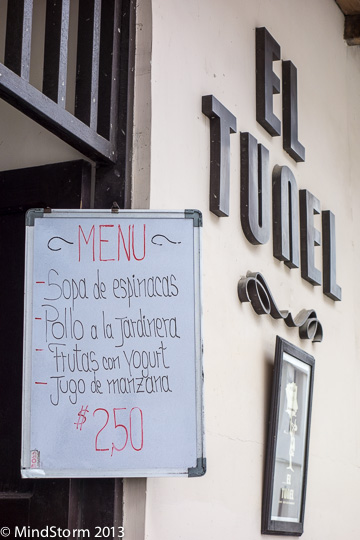 EL
TUNEL
MENU
- Sopa de espinacas
- Pollo a la jardinera
- Frutas con yogurt
- Jugo de manzana
$ 2,50
© MindStorm 2013